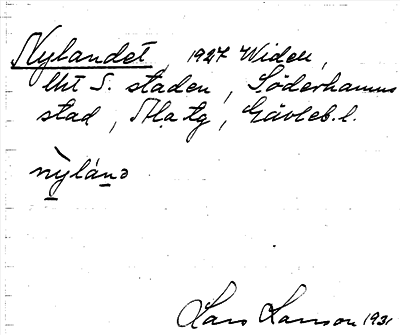 Nylandet, 1927 Widell,
lht S. staden, Söderhamns
stad, Ala tg, Gävleb. l.
nỳlánd
Lars Larsson 1931